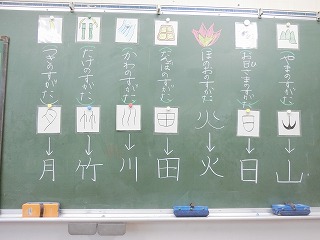 (やまのすがた)
↓山
(お日さまのすがた)
↓日
(ほのおのすがた)
火↓火
(たんぼのすがた)
田↓田
(かわのすがた)
川↓川
(たけのすがた)
竹↓竹
(つきのすがた)
↓月